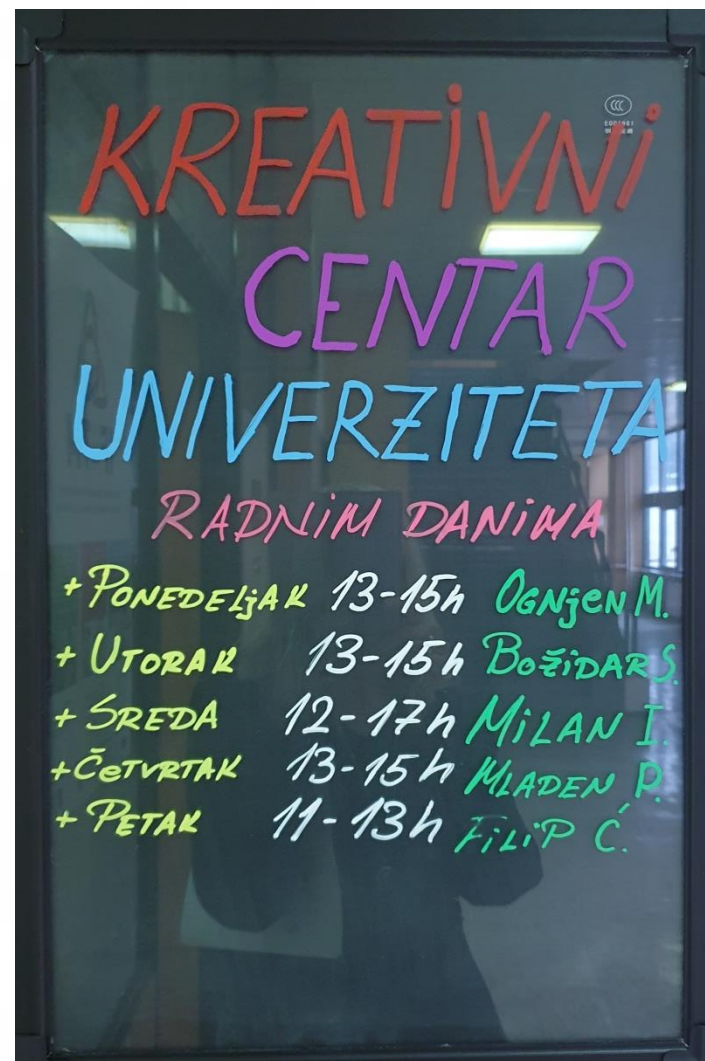 KREATIVNI
CENTAR
UNIVERZITETA
RADNIM DANIMA
+ PONEDELjAK 13-15h OGNjEN M.
+ UTORAK 13-15h BOŽIDAR S.
+ SREDA 12-17h MILAN I.
+ ČETVRTAK 13-15h MLADEN P.
+ PETAK 11-13h FILIP Ć.